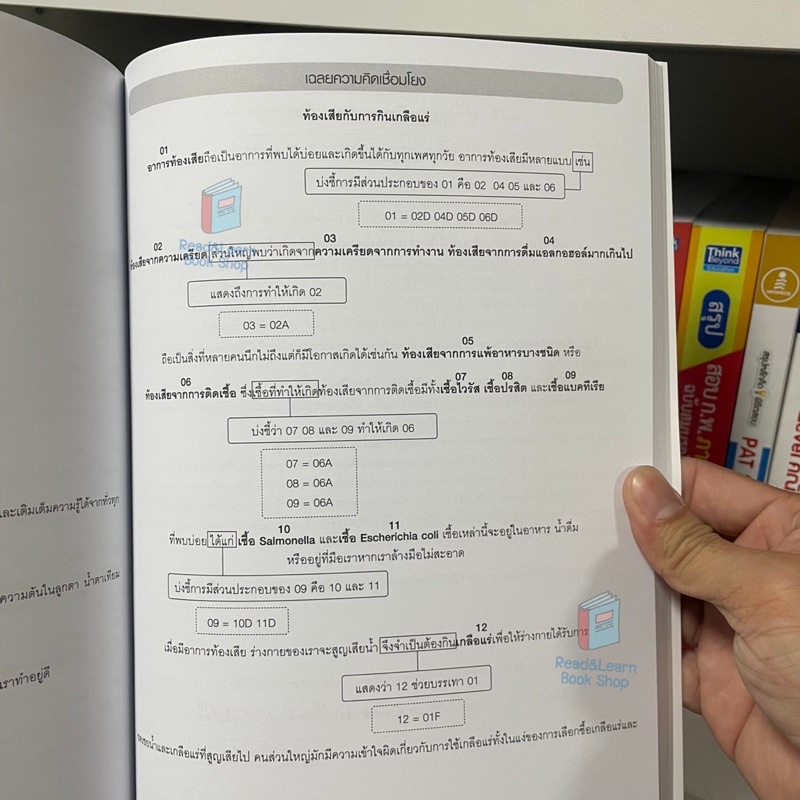 เฉลยความคิดเชื่อมโยง
ท้องเสียกับการกินเกลือแร่
01
อาการท้องเสียถือเป็นอาการที่พบได้บ่อยและเกิดขึ้นได้กับทุกเพศทุกวัย อาการท้องเสียมีหลายแบบ เช่น
บ่งชี้การมีส่วนประกอบของ 01 คือ 02 04 05 และ 06
01 = 02D 04D 05D 06D
02 03 04
ท้องเสียจากความเครียด ส่วนใหญ่พบว่าเกิดจากความเครียดจากการทำงาน ท้องเสียจากการดื่มแอลกอฮอล์มากเกินไป
แสดงถึงการทำให้เกิด 02
03 = 02A
05
ถือเป็นสิ่งที่หลายคนนึกไม่ถึงแต่ก็มีโอกาสเกิดได้เช่นกัน ท้องเสียจากการแพ้อาหารบางชนิด หรือ
06 07 08 09
ท้องเสียจากการติดเชื้อ ซึ่งเชื้อที่ทำให้เกิดท้องเสียจากการติดเชื้อมีทั้งเชื้อไวรัส เชื้อปรสิต และเชื้อแบคทีเรีย
บ่งชี้ว่า 07 08 และ 09 ทำให้เกิด 06
07 = 06A
08 = 06A
09 = 06A
10 11
ที่พบบ่อย ได้แก่ เชื้อ Salmonella และเชื้อ Escherichia coli เชื้อเหล่านี้จะอยู่ในอาหาร น้ำดื่ม
หรืออยู่ที่มือเราหากเราล้างมือไม่สะอาด
บ่งชี้การมีส่วนประกอบของ 09 คือ 10 และ 11
09 = 10D 11D
12
เมื่อมีอาการท้องเสีย ร่างกายของเราจะสูญเสียน้ำ จึงจำเป็นต้องกินเกลือแร่เพื่อให้ร่างกายได้รับการ
แสดงว่า 12 ช่วยบรรเทา 01
12 = 01F
และเกลือแร่ที่สูญเสียไป คนส่วนใหญ่มักมีความเข้าใจผิดเกี่ยวกับการใช้เกลือแร่ทั้งในแง่ของการเลือกซื้อเกลือแร่และ
และเติมเต็มความรู้ได้จากทั่วทุก
ความดันในลูกตา น้ำตาเทียม
เราทำอยู่ดี
Read&Learn
Book Shop
Read&Learn
Book Shop
Think
Beyond
สรุป
สอบ ก.พ. ภาค
PAT